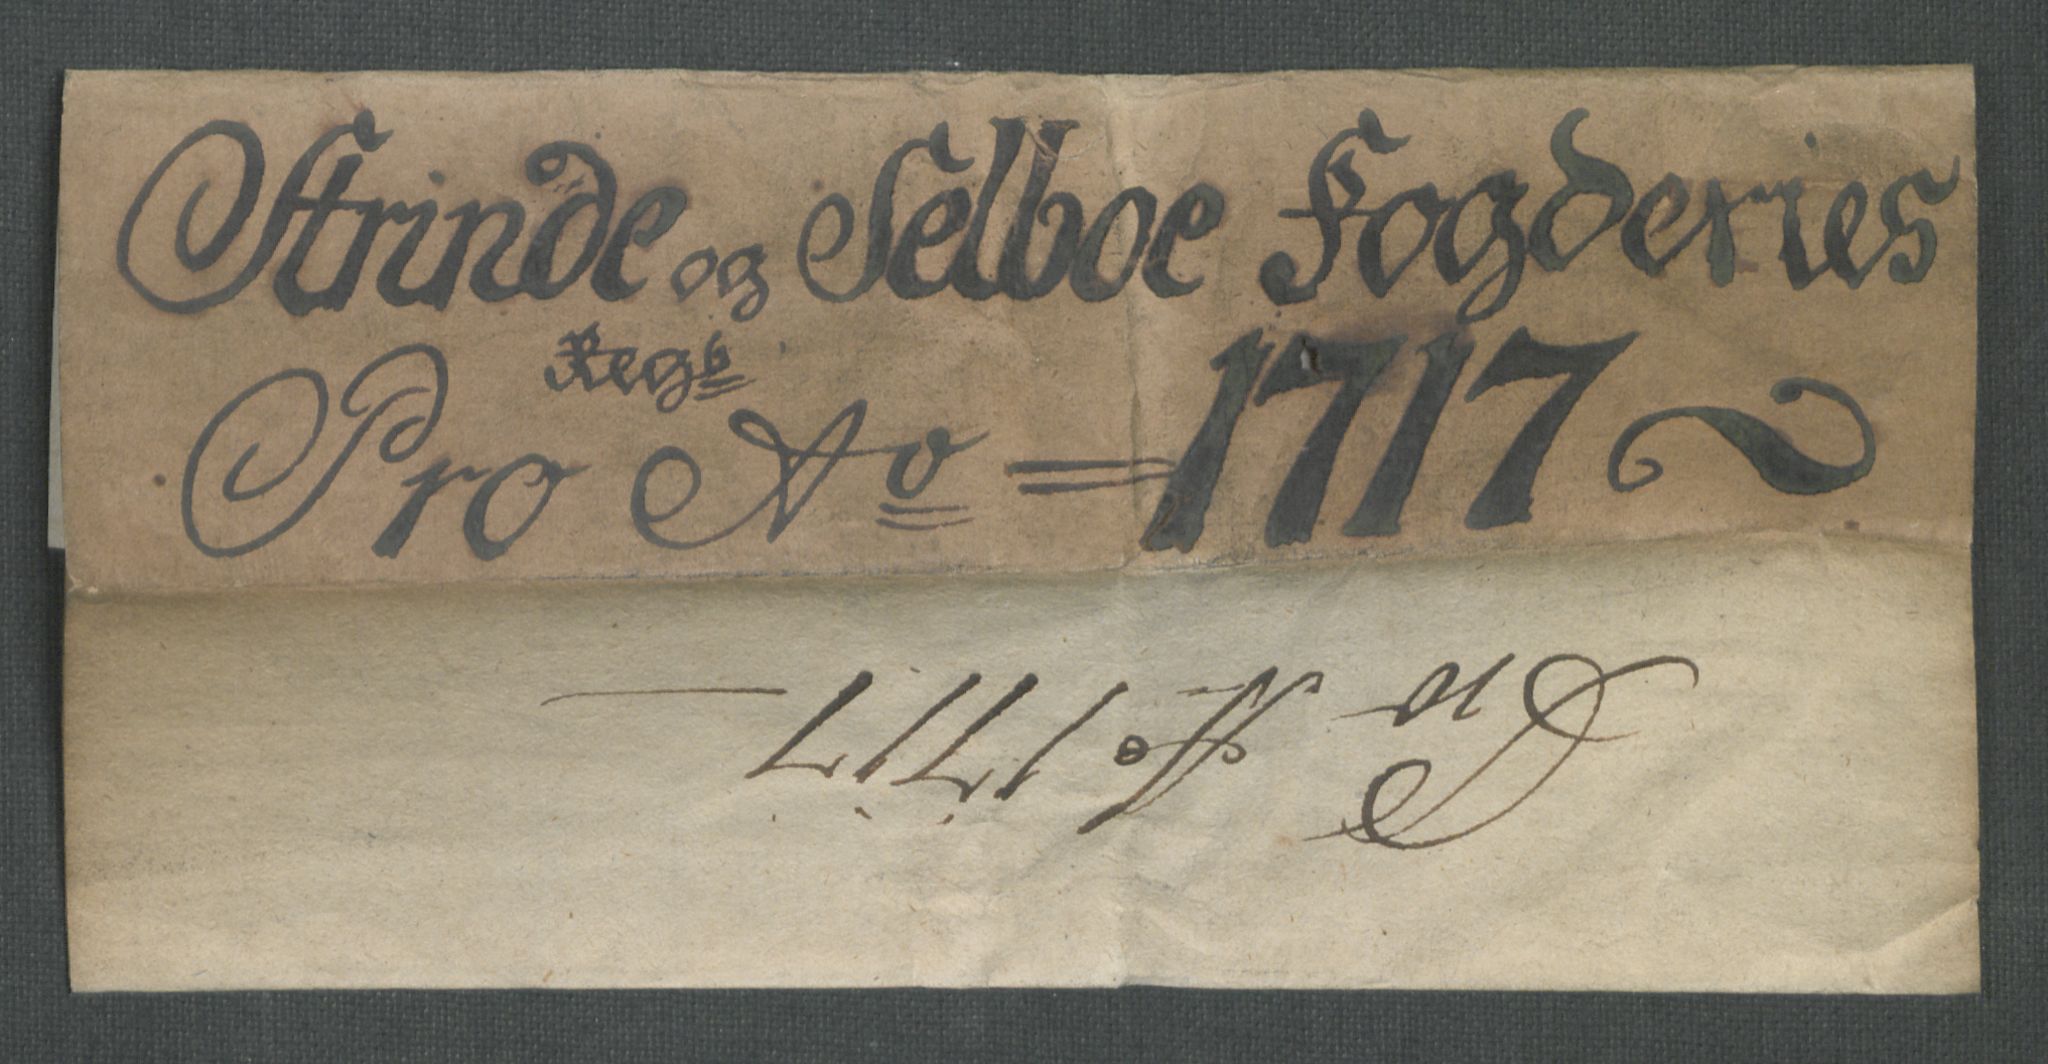 Strinde og Selboe Fogderies
Regb
Pro Ao = 1717
Pro Ao 1717